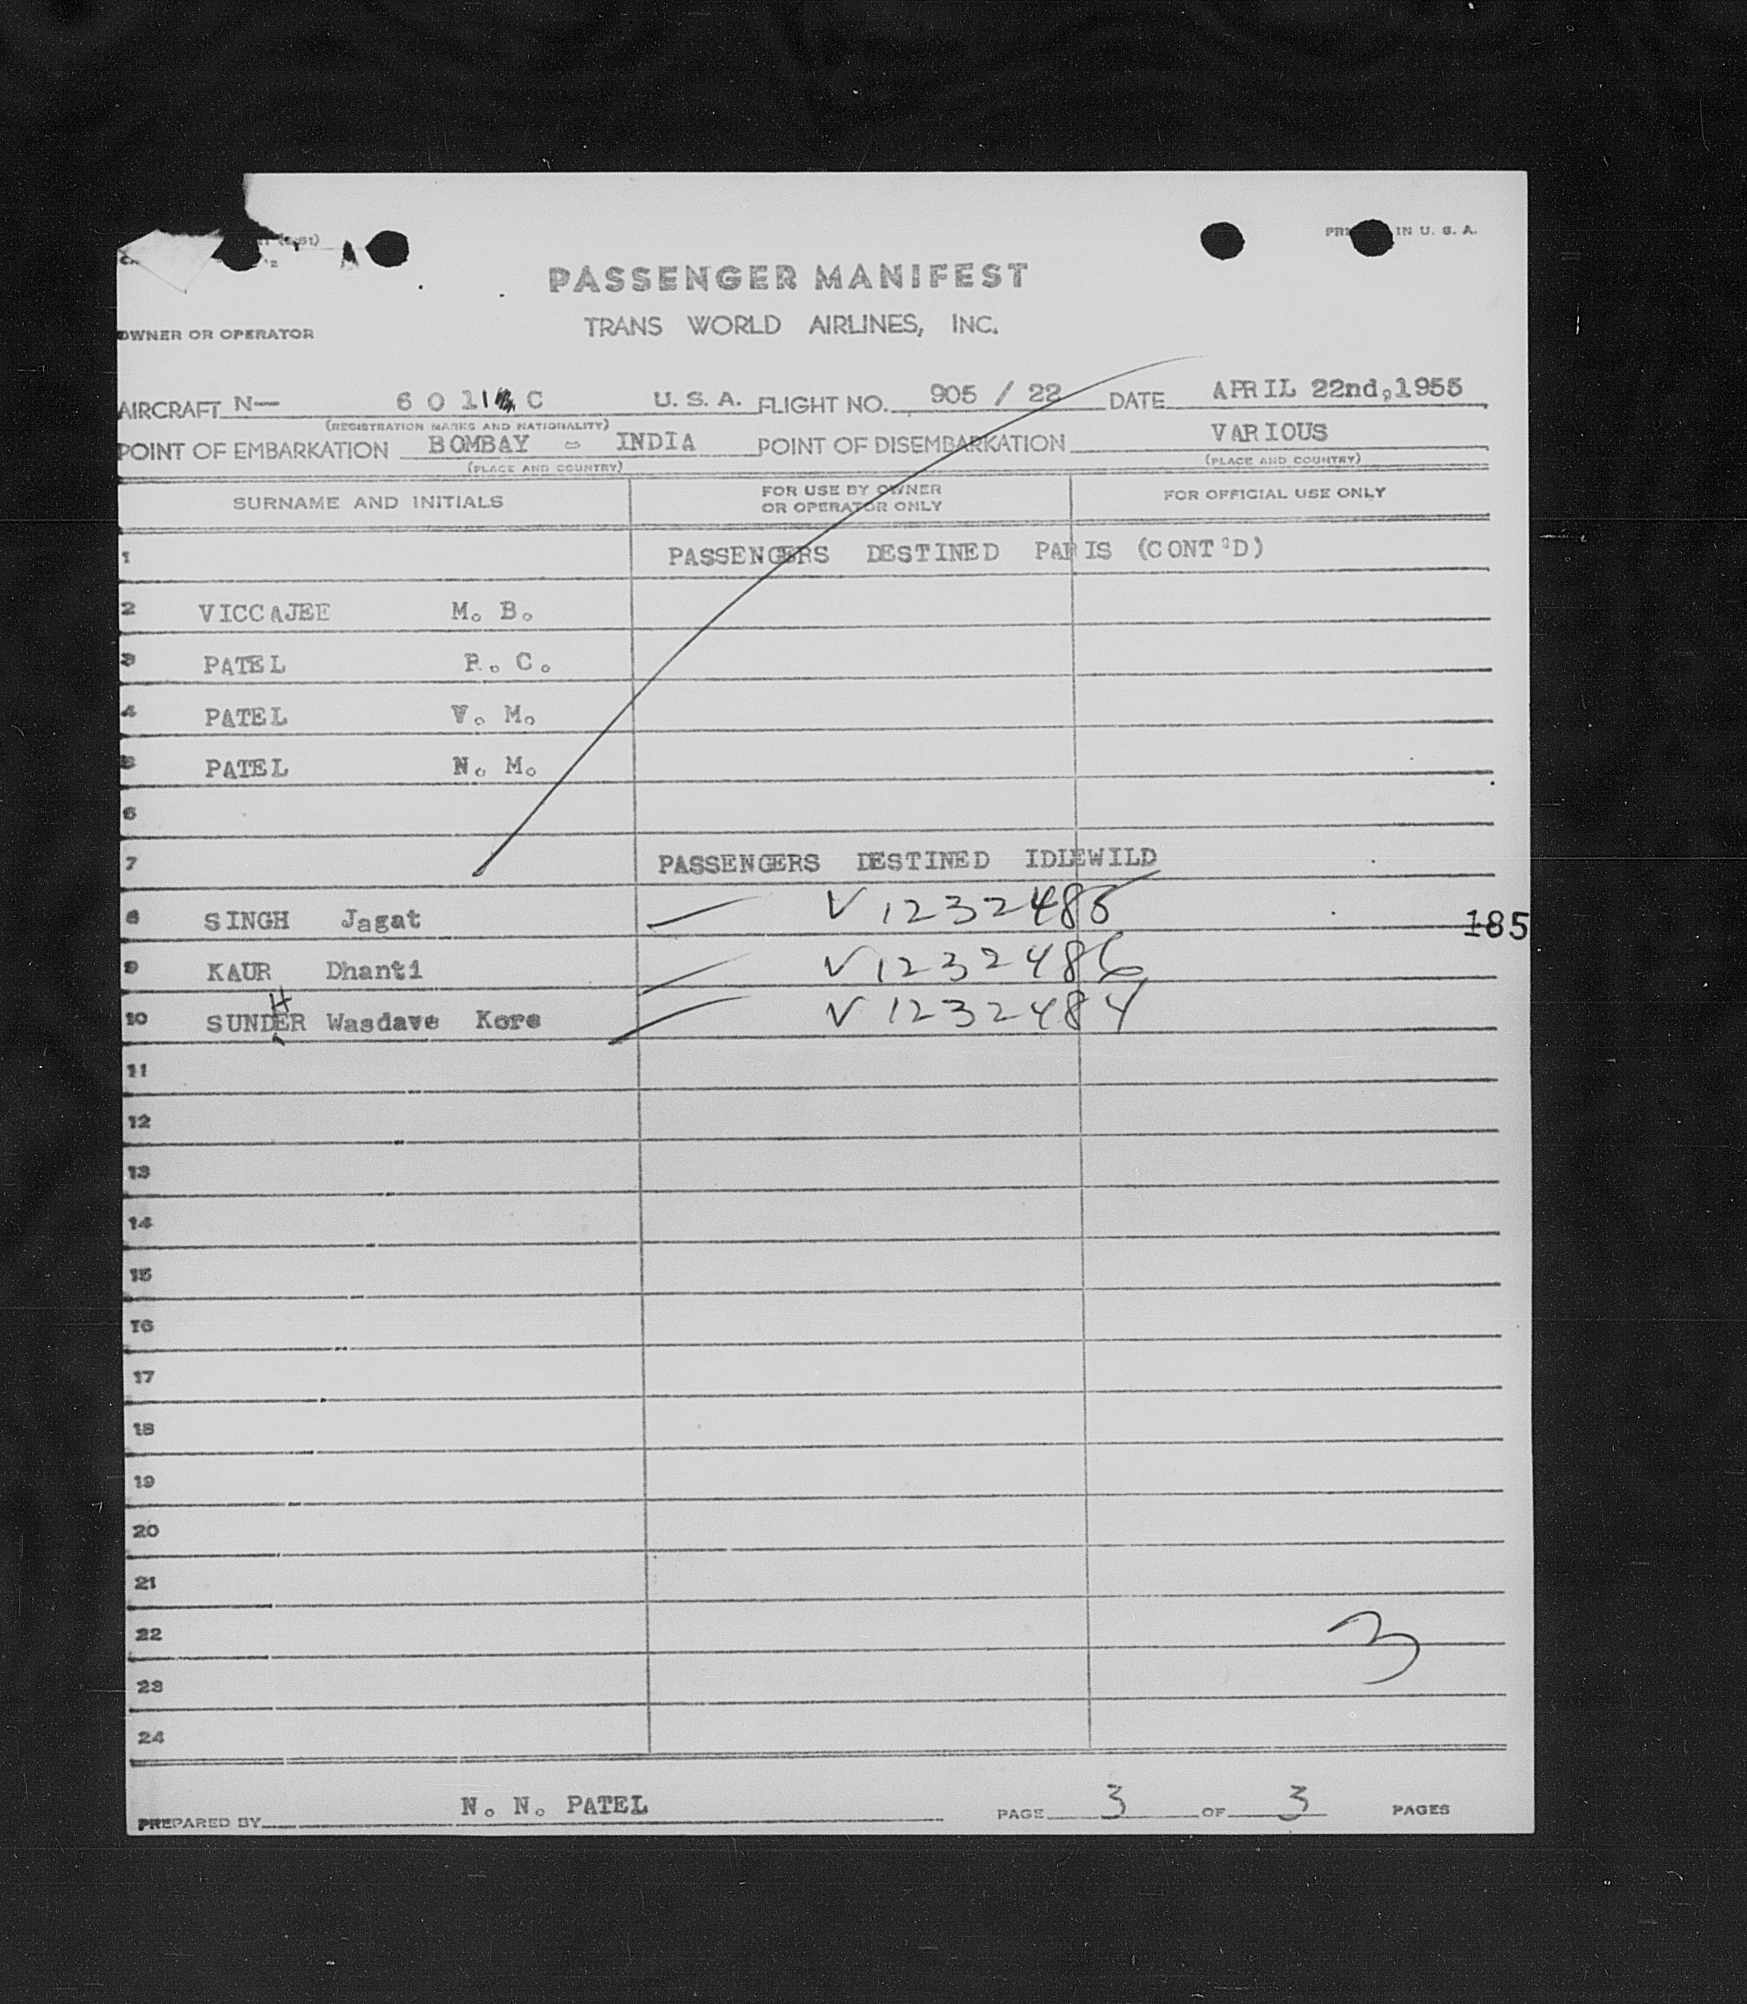 PRINTED IN U. S. A.
PASSENGER MANIFEST
OWNER OR OPERATOR
TRANS WORLD AIRLINES, INC.
AIRCRAFT N— 6 0 11 C U. S. A. FLIGHT NO. 905 / 22 DATE APRIL 22nd,1955
(REGISTRATION MARKS AND NATIONALITY)
POINT OF EMBARKATION BOMBAY - INDIA POINT OF DISEMBARKATION VARIOUS
(PLACE AND COUNTRY) (PLACE AND COUNTRY)
SURNAME AND INITIALS FOR USE BY OWNER OR OPERATOR ONLY FOR OFFICIAL USE ONLY
1 PASSENGERS DESTINED PARIS (CONT'D)
2 VICCAJEE M. B.
3 PATEL R. C.
4 PATEL V. M.
5 PATEL N. M.
6
7 PASSENGERS DESTINED IDLEWILD
8 SINGH Jagat — V 1232485
185
9 KAUR Dhanti — V 1232486
H
10 SUNDER Wasdave Kore — V 1232484
11
12
13
14
15
16
17
18
19
20
21
22
3
23
24
PREPARED BY N. N. PATEL PAGE 3 OF 3 PAGES